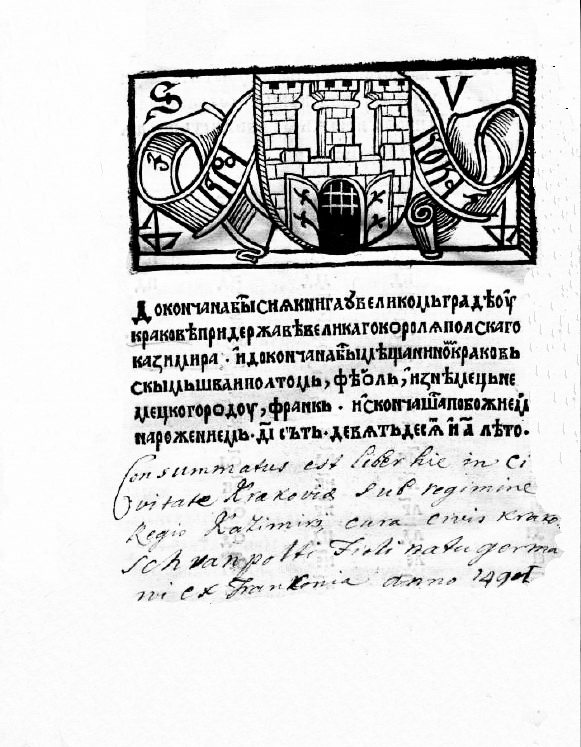 S V
Докончана бы́ сиꙗ книга оу великомь градѣ оу
краковѣ при державѣ великаго королꙗ полскаго
казимира · и докончана бы́ мѣщанино́ краковь
скымь шваиполтомь, фѣоль, из нѣмець не
мецкого родоу, франкь · и скончашѧ по божиемь
нарожениемь · д҃і сътъ · девѧтьдесѧ́ и а҃ лѣто ·
Consummatus est liber hic in ci
vitate Krakovia sub regimine
Regio Kazimiri, cura civis krako.
Schvanpolti Fioli natu germa
ni ex Frankonia anno 1491